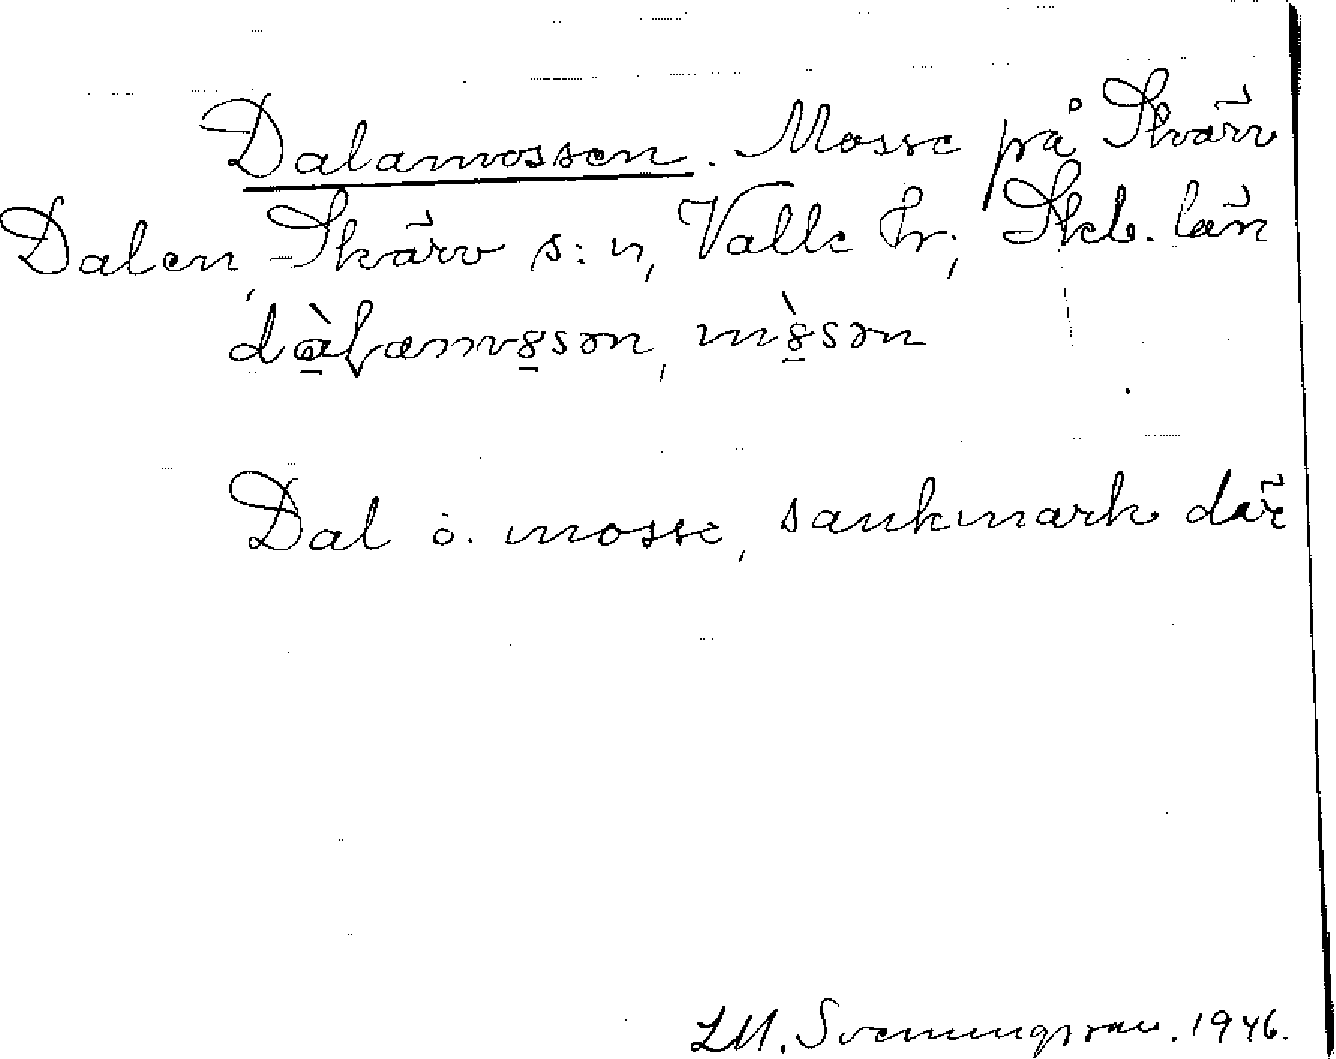 Dalamossen. Mosse på Skärv
Dalen, Skärv s:n, Valle hr; Skb. län
mòsən
Dal o. mosse, sankmark där
Svenungsson. 1946.